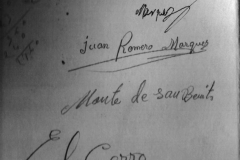 Marquez
Juan Romero Marques
Monte de San Benito
El Cerro